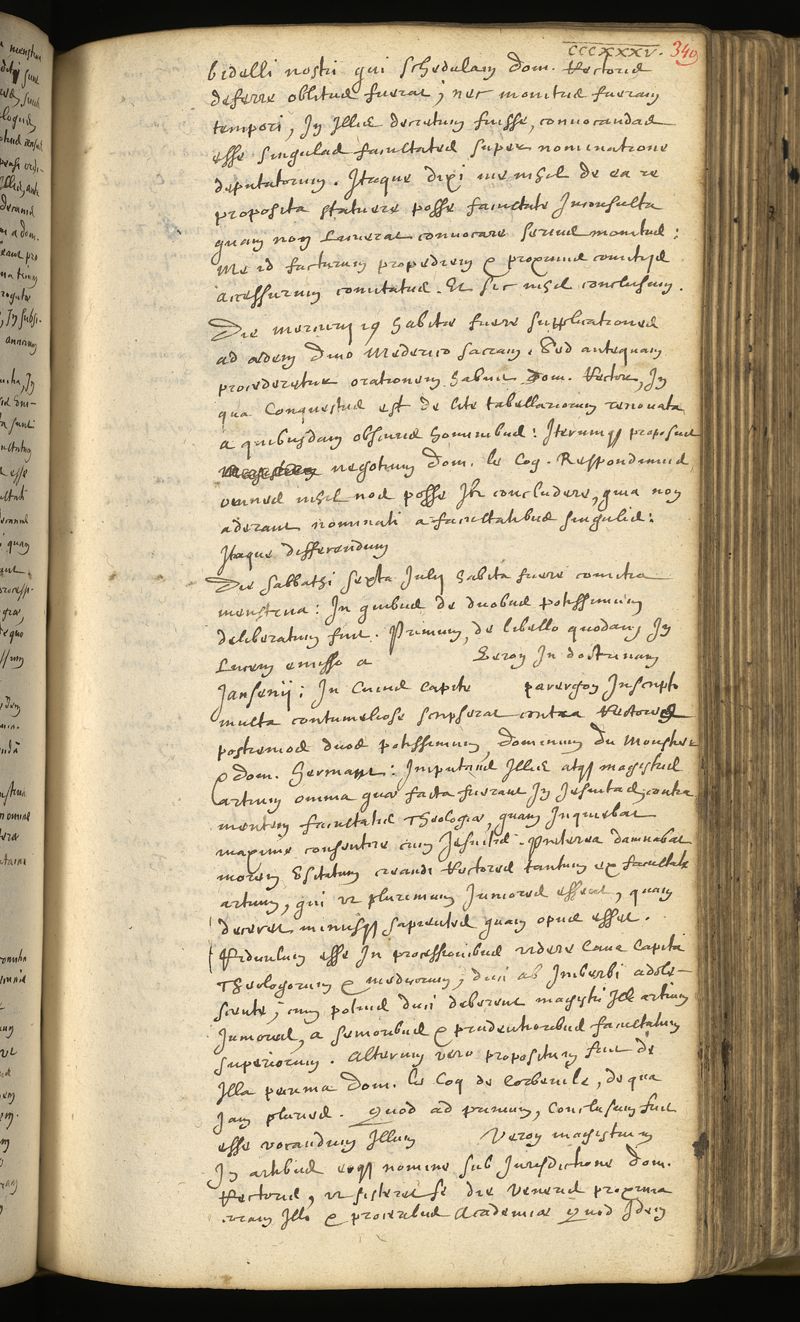 CCCXXXV. 349
bidelli nostri qui schedulam Dom. Rectoris
deferre oblitus fuerat, nec monitus fueram
tempori, In Illis decretum fuisse, convocandas
esse singulas facultates super nominatione
deputatorum. Itaque dixi me nihil de ea re
proposita statuere posse facultate Inconsulta
quam non Licuerat convocare serius monitus:
Me id facturum propediem & proximis comitijs
accessurum comitatus. Et sic nihil conclusum.
Die mercurij 19 habitæ fuere supplicationes
ad ædem Divo Mederico sacram. Sed antequam
procederetur orationem habuit Dom. Rector, In
qua Conquestus est de lite tabellariorum renovata
a quibusdam obscuris hominibus: Iterumq; proposuit
negotium Dom. le Coq. Respondimus
omnes nihil nos posse Ibi concludere, quia non
aderant nominati a facultatibus singulis:
Itaque differendum
Die Sabbathi sexta Julij habita fuere comitia
menstrua: In quibus de duobus potissimum
deliberatum fuit. Primum, de libello quodam In
Lucem emisso a Veron In doctrinam
Jansenij; In Cuius Capite parergon Inscripto
multa contumeliose scripserat contra Rectores
postremos duos potissimum, Dominum Du Monstier
& Dom. Hermant: Imputans Illis atq; magistris
artium omnia quæ facta fuerant In Jesuitas, contra
mentem facultatis Theologiæ, quam Inquiebat
maxime consentire cum Jesuitis. Præterea damnabat
morem Usitatum creandi Rectores tantum ex facultate
artium, qui ut plurimum Juniores essent, quam
deceret minusq; sapientes quam opus esset.
Ridiculum esse In processionibus videre Cana Capita
Theologorum & medicorum, duci ab Imberbi adole-
scente, cum potius duci deberent magistri Illi artium
Juniores, a senioribus & prudentioribus facultatum
superiorum. Alterum vero propositum fuit de
Illa Dom. le Coq de Corbeville, de qua
Jam plures. Quod ad primum, Conclusum fuit
esse vocandum Illum Veron magistrum
In artibus eoq; nomine sub Jurisdictione Dom.
Rectoris, ut sisteret se die Veneris proxima
coram Illo & proceribus Academiæ Quod Idem